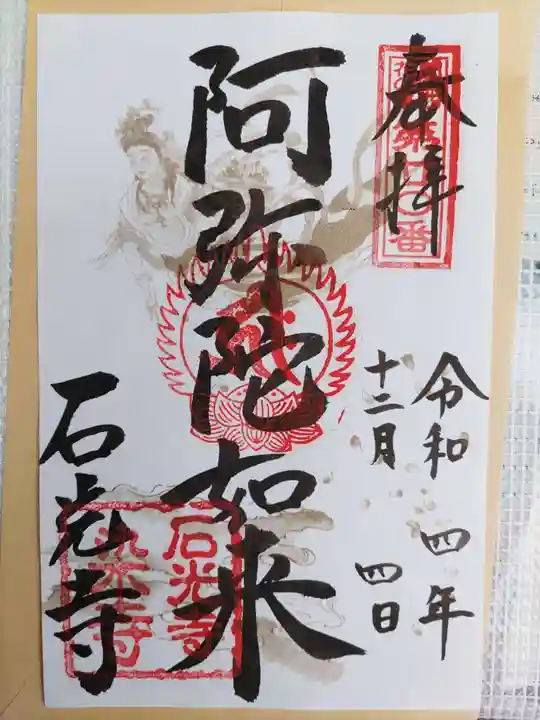 奉拝
令和四年
十二月四日
阿弥陀如来
石光寺
石光寺
染寺